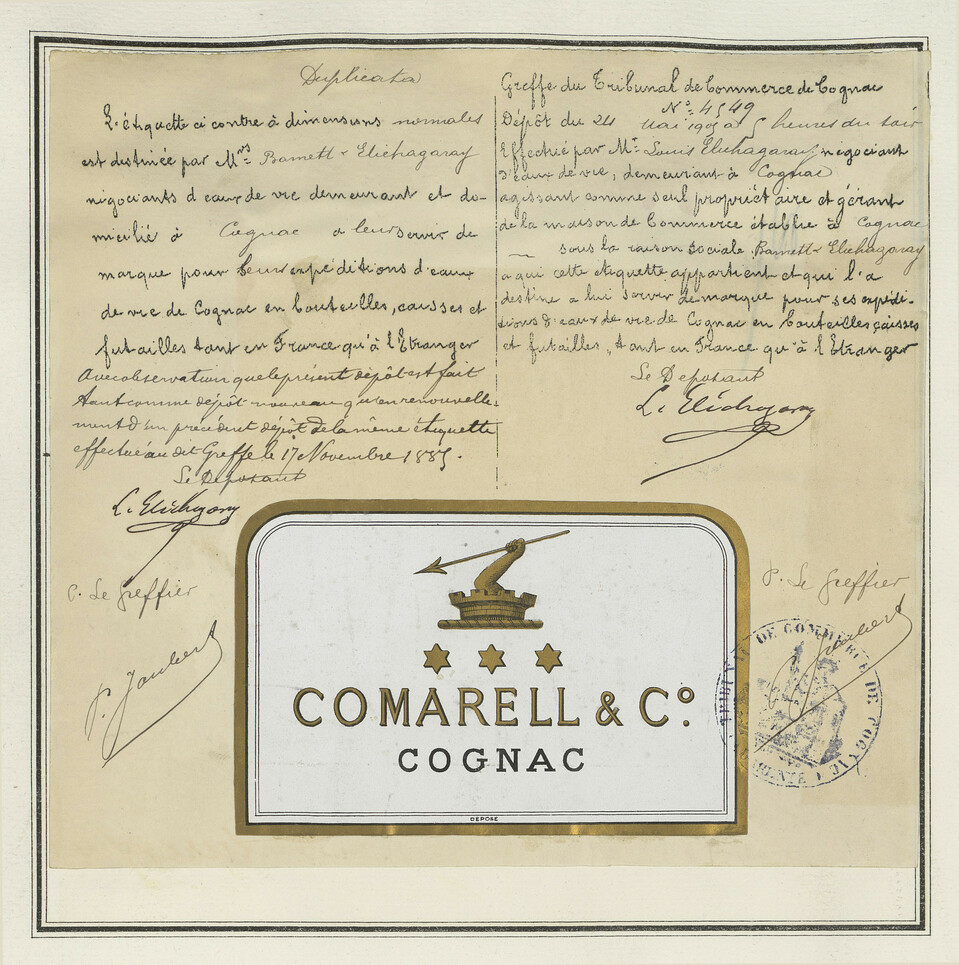 Duplicata
L'étiquette ci contre à dimensions normales
est destinée par Mrs Barnett & Elichagaray
négociants d'eaux de vie demeurant et do-
micilié à Cognac a leur servir de
marque pour leur expéditions d'eaux
de vie de Cognac en bouteilles, caisses et
futailles tant en France qu'à l'Etranger
Avec observation que le présent dépôt est fait
tant comme dépôt nouveau qu'en renouvelle-
ment d'un précédent dépôt de la même étiquette
effectué au dit Greffe le 17 Novembre 1885.
Le Déposant
L. Elichagaray
P. Le Greffier
P. Joubert
Greffe du Tribunal de Commerce de Cognac
No. 4549
Dépôt du 24 Mai 1905 à 5 heures du soir
Effectué par Mr. Louis Elichagaray négociant
d'eaux de vie, demeurant à Cognac
agissant comme seul propriétaire et gérant
de la maison de Commerce établie à Cognac
sous la raison sociale Barnett & Elichagaray
a qui cette étiquette appartient et qui l'a
destine a lui servir de marque pour ses expédi-
tions d'eaux de vie de Cognac en bouteilles caisses
et futailles, tant en France qu'à l'Etranger
Le Deposant
L. Elichagaray
P. Le Greffier
Joubert
COMARELL & Co.
COGNAC
DÉPOSÉ
TRIBUNAL DE COMMERCE DE COGNAC